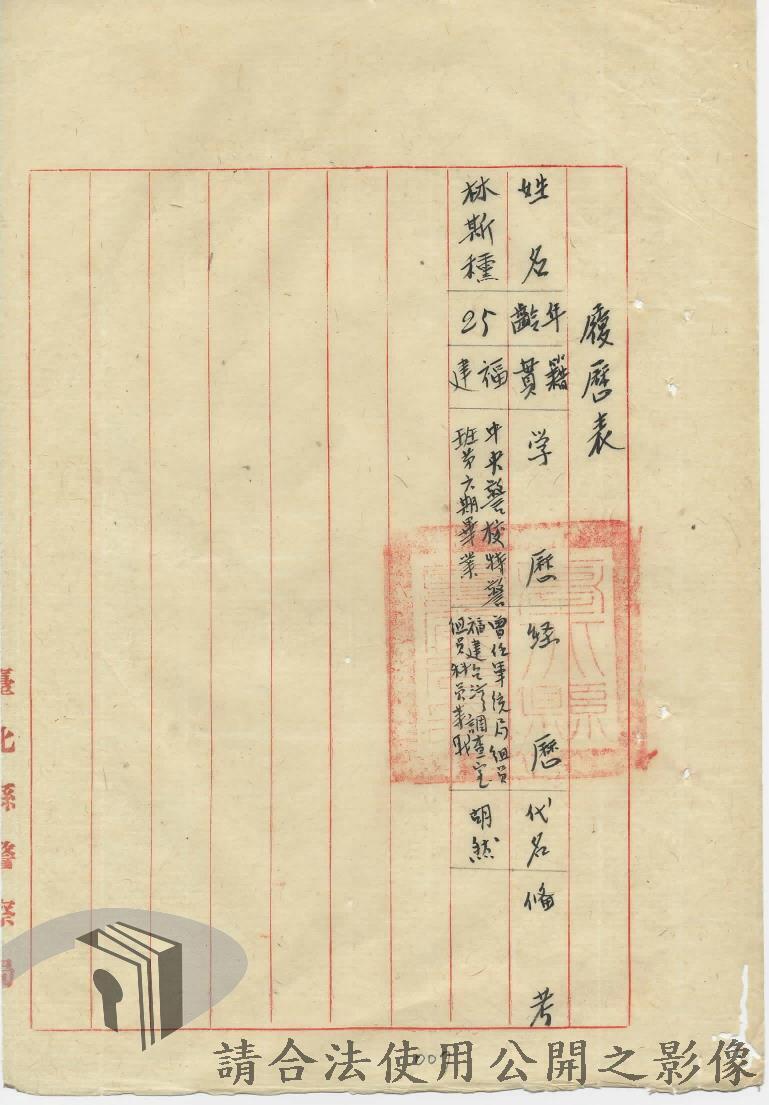 履歷表
姓名
年齡
籍貫
学歷
经歷
代名
俻考
林斯
25
福建
中央警校特警
班第六期畢業
曾任軍统局组员
福建台湾調查室
组员科員等职
胡然
臺北縣警察局
請合法使用公開之影像